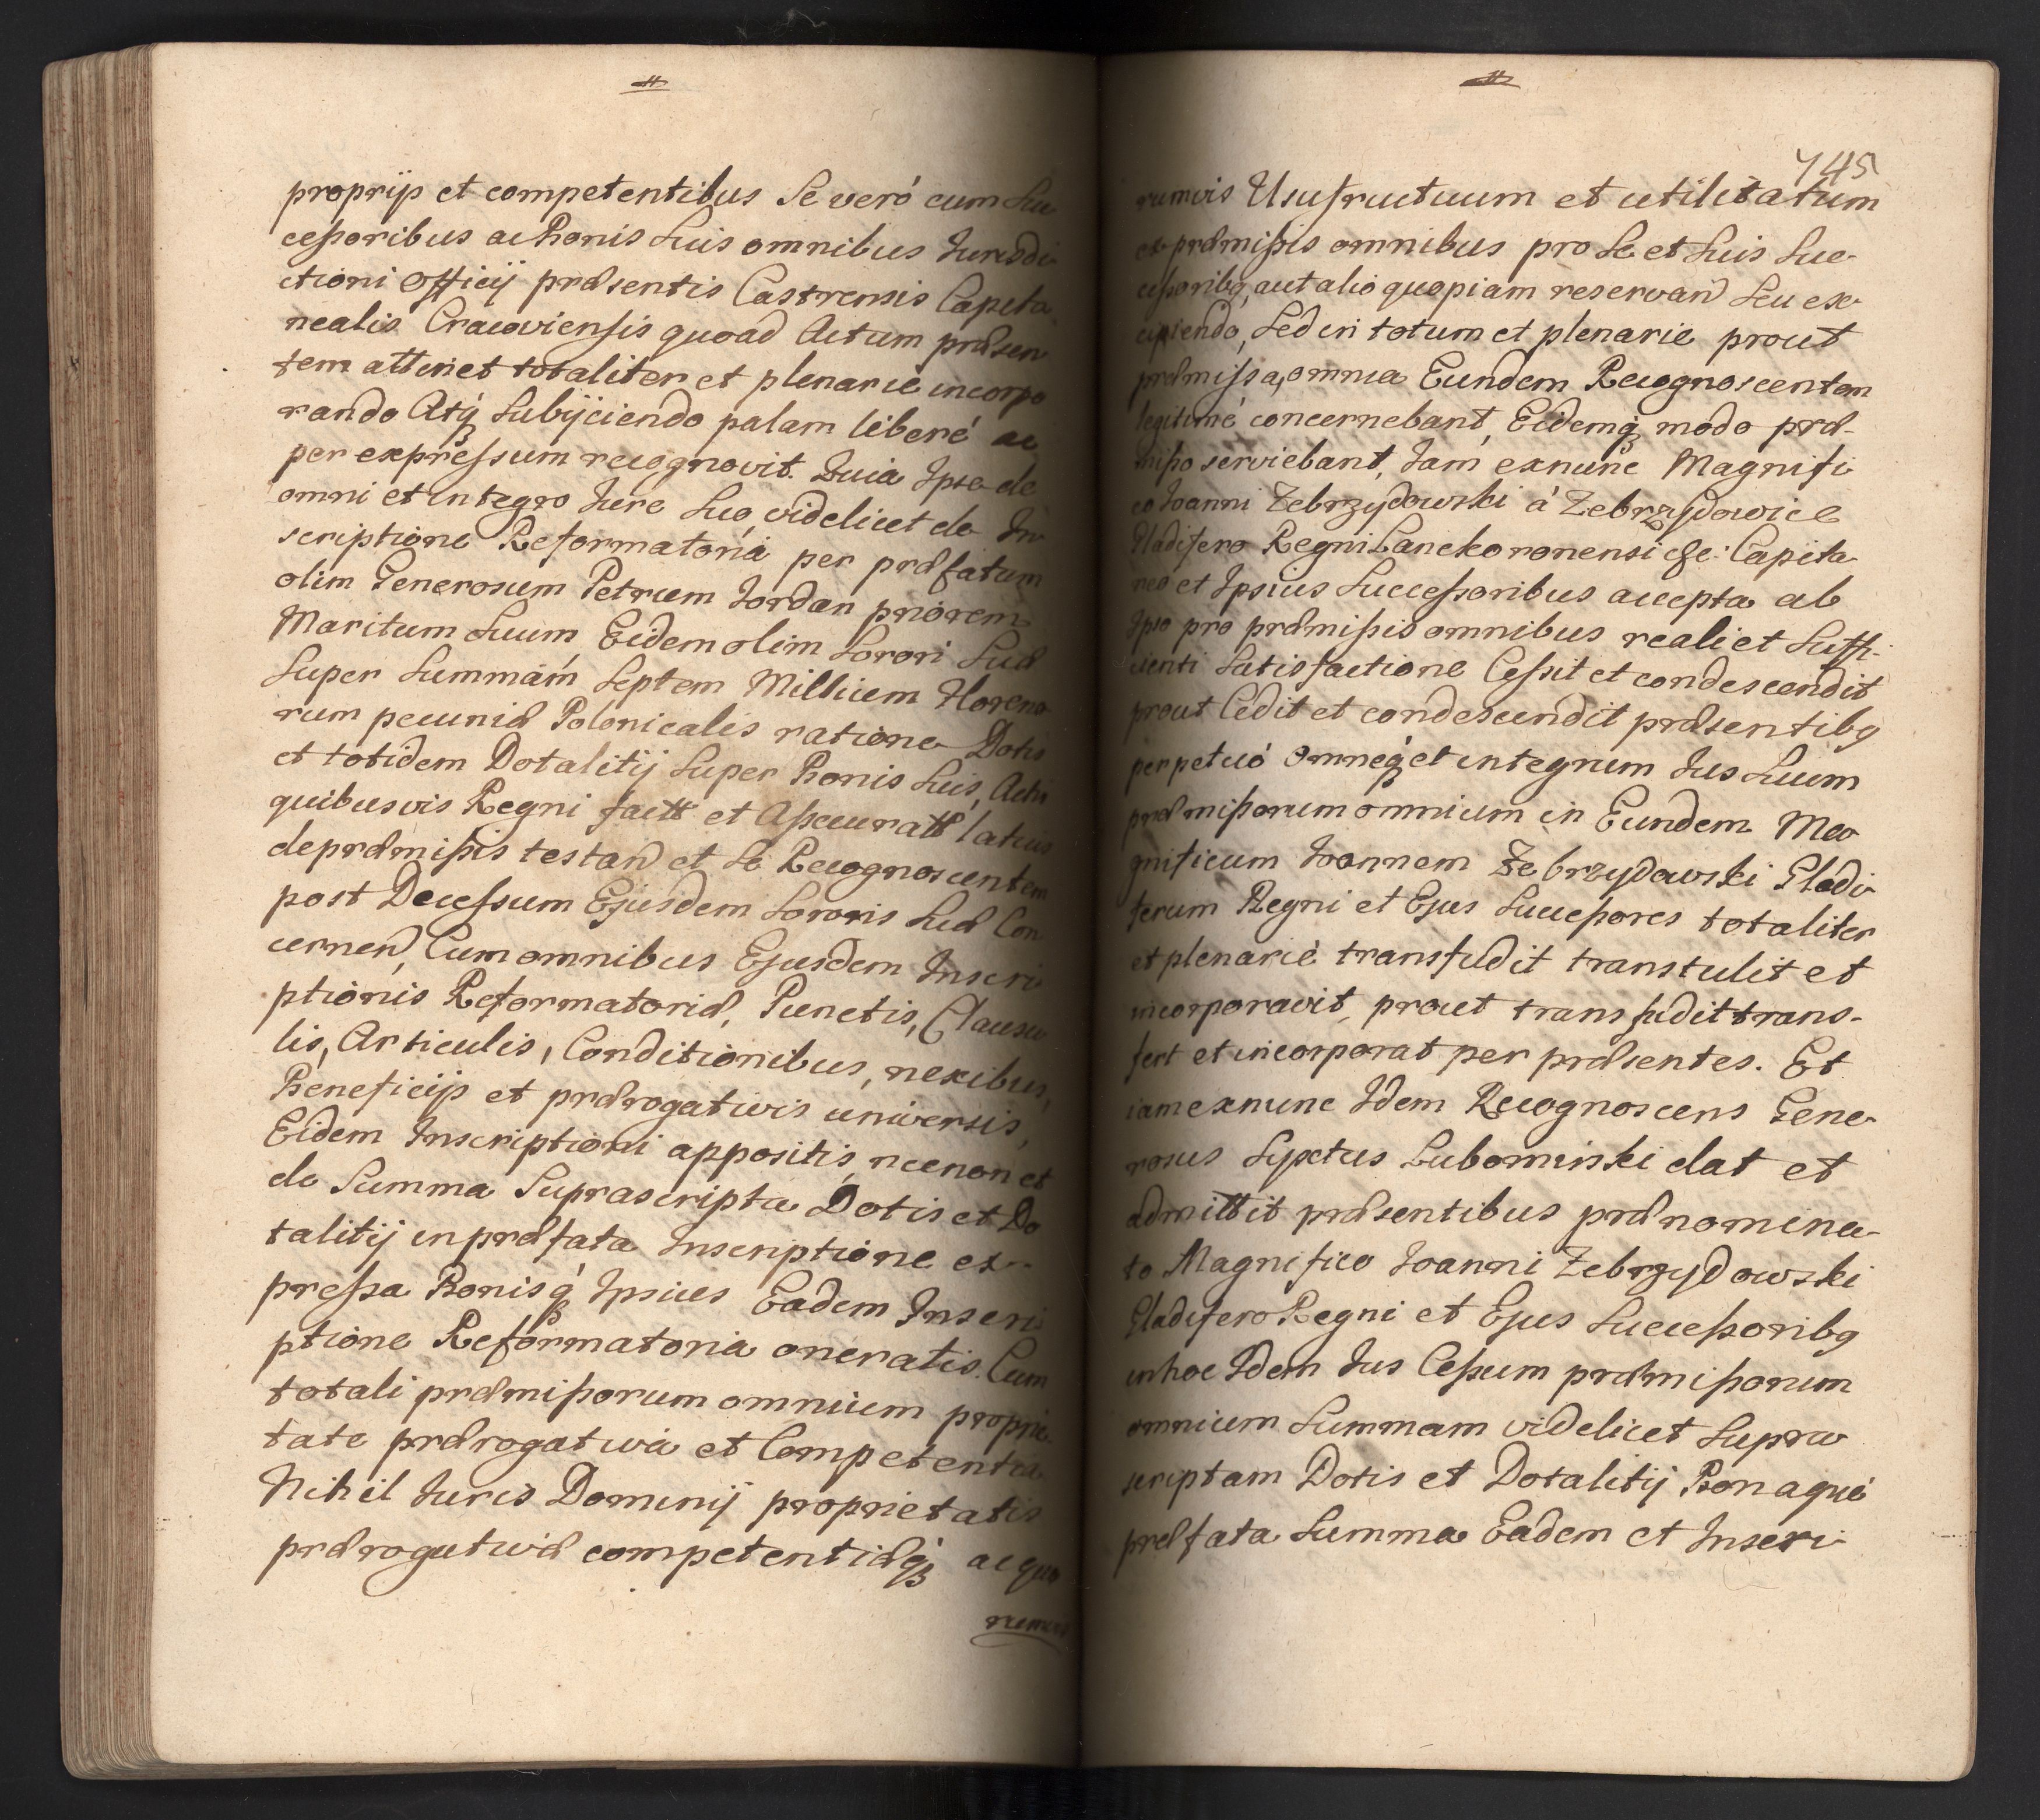 proprijs et competentibus Se veró cum Suc
cessoribus ac Bonis Suis omnibus Iurisdi
ctioni Officij præsentis Castrensis Capita
nealis Cracoviensis quoad Actum præsen
tem attinet totaliter et plenarie incorpo
rando Atq́ Subijciendo palam liberé ac
per expressum recognovit. Quia Ipse de
omni et integro Iure Suo, videlicet de In
scriptione Reformatoria per præfatum
olim Generosum Petrum Iordan priorem
Maritum Suum, Eidem olim Sorori Suæ
Super Summam Septem Millium Floreno
rum pecuniæ Polonicalis ratione Dotis
et totidem Dotalitij Super Bonis Suis, Actis
quibusvis Regni factt et Assecuratt latius
de præmissis testan et Se Recognoscentem
post Decessum Ejusdem Sororis Suæ Con
cernen, Cum omnibus Ejusdem Inscri
ptionis Reformatoriæ, Punctis, Clausu
lis, Articulis, Conditionibus, nexibus,
Beneficijs et prærogativis universis,
Eidem Inscriptioni appositis, necnon et
de Summa Suprascripta Dotis et Do
talitij in præfata Inscriptione ex-
pressa Bonisq́ Ipsius Eadem Inscri
ptione Reformatoria oneratis. Cum
totali præmissorum omnium proprie
tate prærogativa et Competentia
Nihil Iuris Dominij proprietatis
prærogativæ competentiæq́ ac quo
rumvis
#
745
rumvis Usufructuum et utilitatum
ex præmissis omnibus pro Se et Suis Suc
cessoribq, aut alio quopiam reservan Seu ex
cipiendo, Sed in totum et plenarie prout
præmissa, omnia Eundem Recognoscentem
legitimé concernebant, Eidemq́ modo præ-
misso serviebant, Iam exnunc Magnifi
co Ioanni Zebrzydowski á Zebrzydowice
Gladifero Regni Lanckoronensi &c: Capita
neo et Ipsius Successoribus accepta ab
Ipso pro præmissis omnibus reali et Suffi-
cienti Satisfactione Cessit et condescendit
prout Cedit et condescendit præsentibq
perpetuó Omneq́ et integrum Ius Suum
præmissorum omnium in Eundem Ma
gnificum Ioannem Zebrzydowski Gladi
ferum Regni et Ejus Successores totaliter
et plenarié transfudit transtulit et
incorporavit, prout transfudit trans-
fert et incorporat per præsentes. Et
iam exnunc Idem Recognoscens Gene
rosus Sixtus Lubomirski dat et
admittit præsentibus prænomina-
to Magnifico Ioanni Zebrzydowski
Gladifero Regni et Ejus Successoribq
in hoc Idem Ius Cessum præmissorum
omnium Summam videlicet Supra
scriptam Dotis et Dotalitij Bonaque
præfata Summa Eadem et Inscri